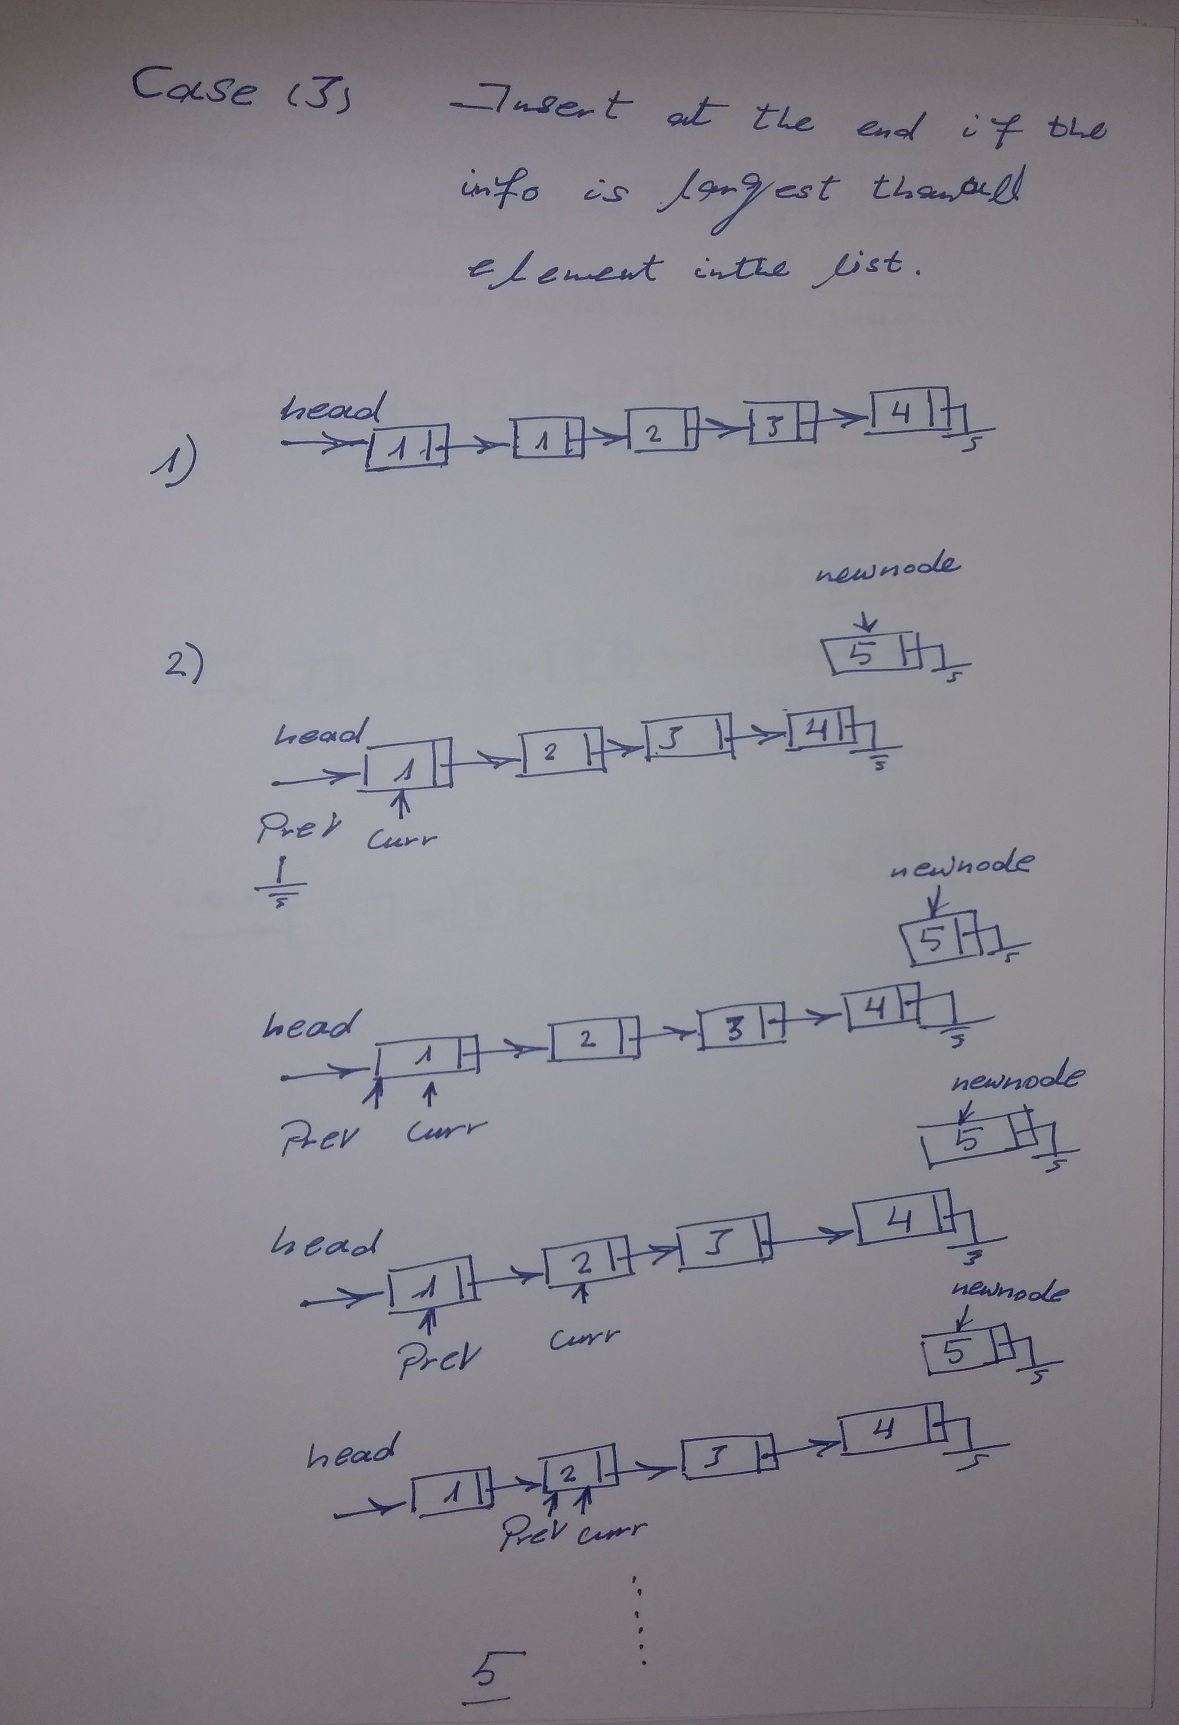 Case (3) Insert at the end if the
info is largest than all
element in the list.
head
1) 1 1 2 3 4
newnode
2) 5
head
1 2 3 4
Prev Curr
newnode
5
head
1 2 3 4
Prev Curr
newnode
5
head
1 2 3 4
Prev Curr
newnode
5
head
1 2 3 4
Prev curr
5